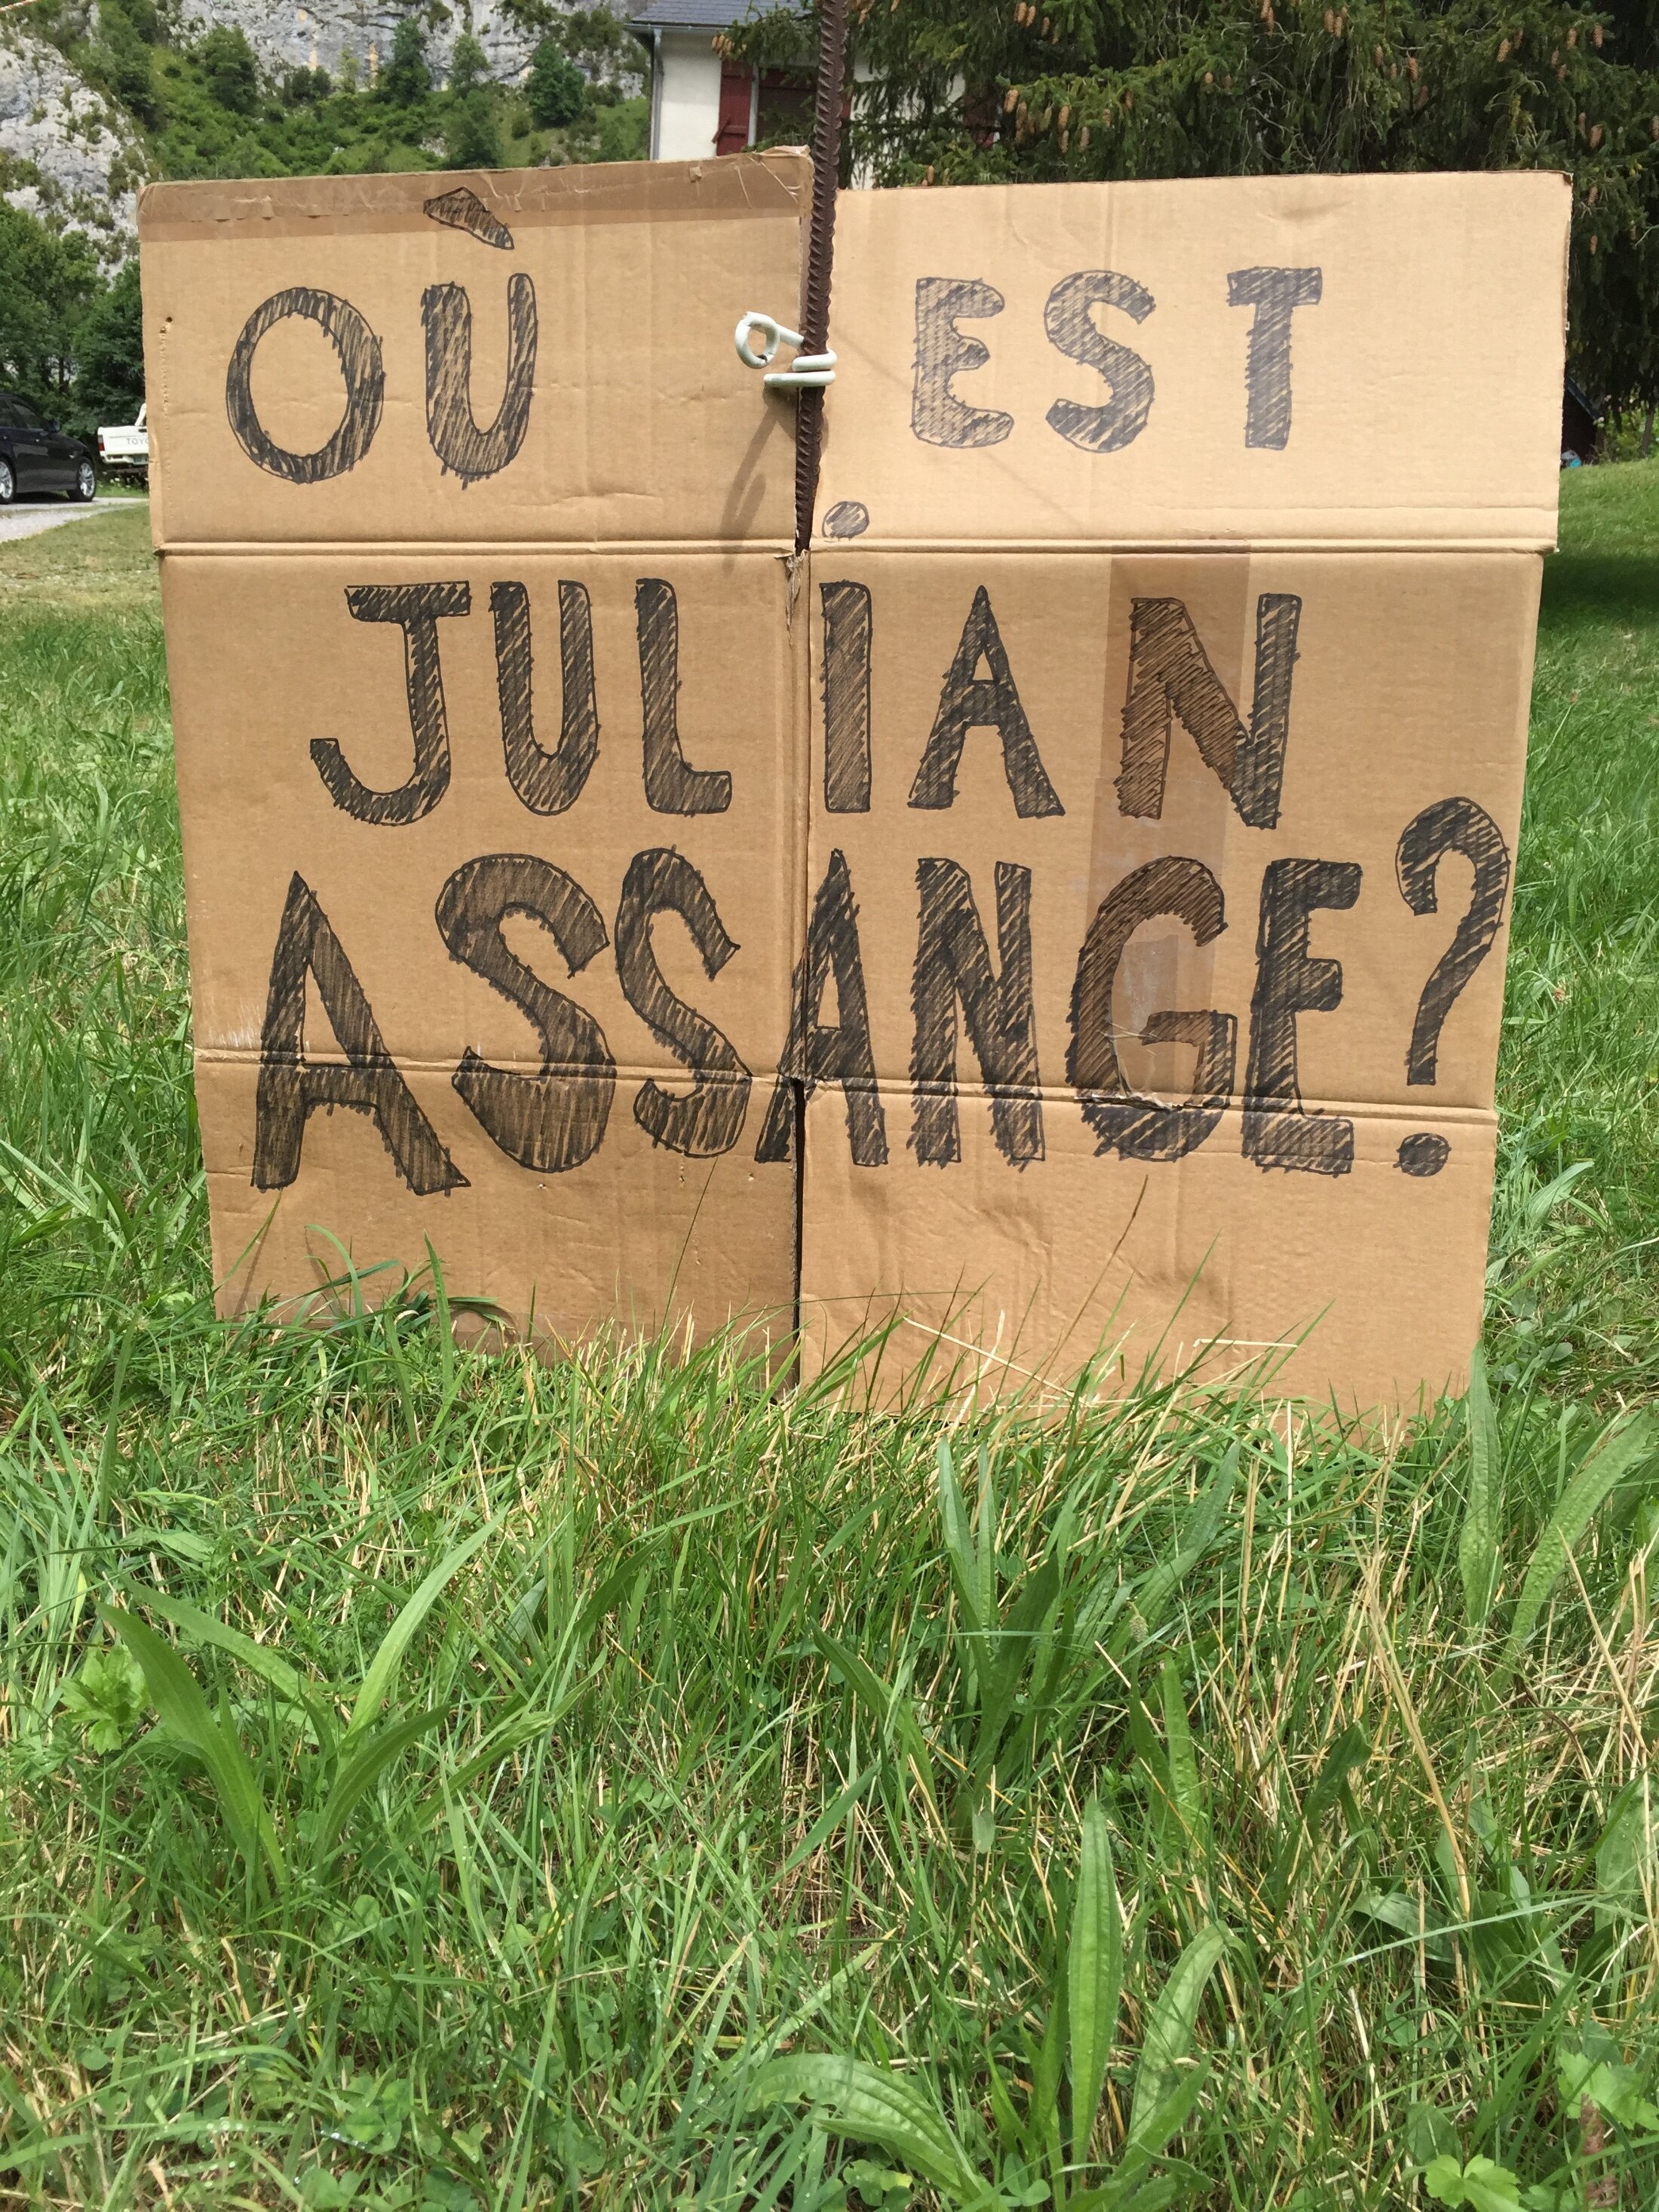 OÙ EST
JULIAN
ASSANGE?
TOYO